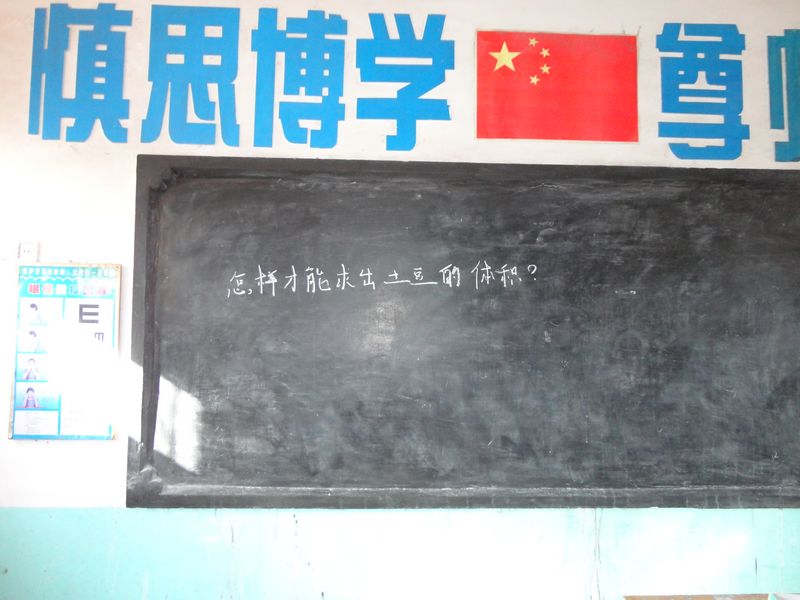 慎思博学
尊师
怎样才能求出土豆的体积?
E